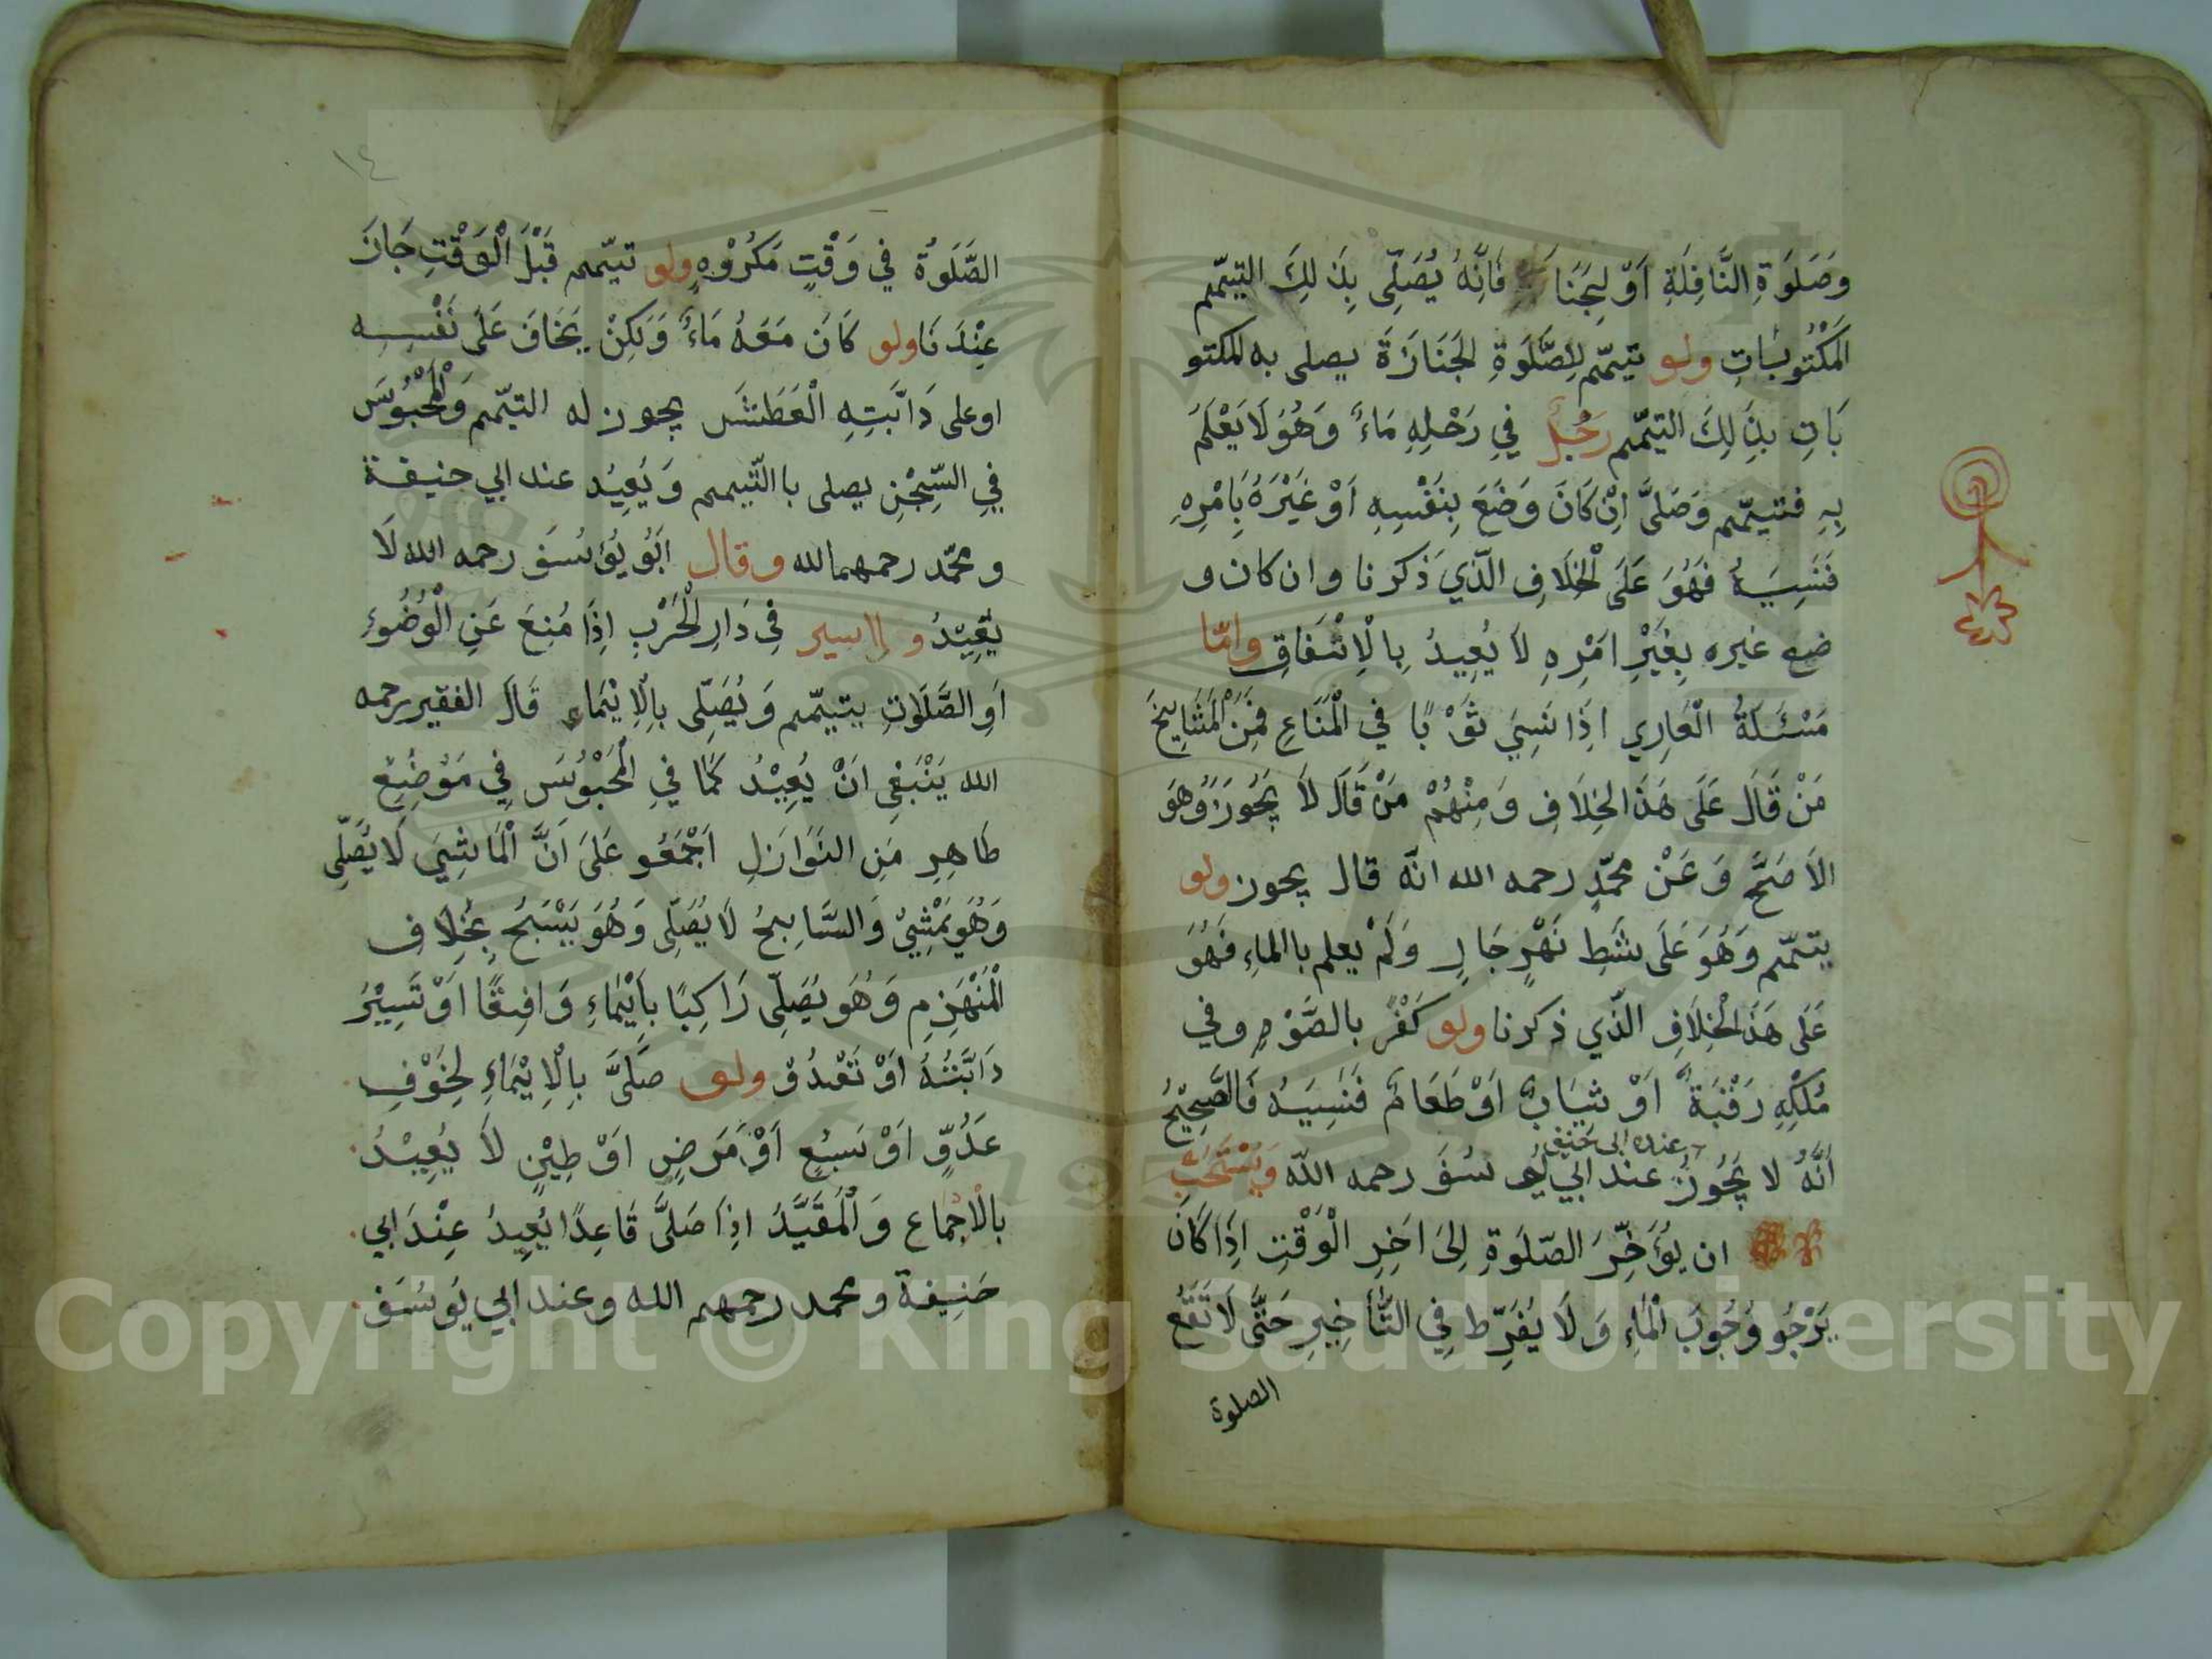 وَصَلَوةِ النَّافِلَةِ اَوْ لِجَنَازَةٍ فَاِنَّهُ يُصَلِّى بِذَالِكَ التيمّم
المَكْتُوبَاتِ ولو تيمّم لِصَّلَوةِ الجَنَازَةَ يصلى به المكتو
بَاتِ بِذَلِكَ التيمّم رَجُلٌ فِي رَحْلِهِ مَاءٌ وَهُوَ لَا يَعْلَمَ
بِهِ فتيمّم وَصَلىَّ اِنْ كَانَ وَضَعَ بِنَفْسِهِ اَوْ غَيْرَهُ بِاَمْرِهِ
فَنَسِيَهُ فَهُوَ عَلَى الْخِلَافِ الَّذِي ذَكرنا وان كان و
ضع غيره بِغَيْرِ اَمْرِهِ لاَ يُعِيدُ بِالْاِتْفَاقِ وامّا
مَسْئَلَةُ الْعَارِي اِذَا نَسِيَ ثَوْبًا فِي الْمَتَاعِ فَمِنَ الْمَشَايِخَ
مَنْ قَالَ عَلَى هَذَا الخِلَافِ وَمِنْهُمْ مَنْ قَالَ لاَ يَجُوزُ وَهُوَ
الاَصَحَّ وَعَنْ محمّدٍ رحمه الله انّه قال يجوز ولو
يتمّم وَهُوَ عَلَى شَطِ نَهْرٍ جَارٍ وَلَمْ يعلم باالماءِ فَهُوَ
عَلَى هَذَا الْخِلَافِ الّذي ذكرنا ولو كَفْرٌ بالصَّوْمِ وفي
مُلْكِهِ رَقْبَةٌ اَوْ ثِيَابٌ اَوْ طَعَامٌ فَنَسِيَهُ فَالصَّحِيْحُ
عنده ابى حنيفه
اَنَّهُ لا يَجُوزُ عند ابي يُو سُفَ رحمه اللّه وَيُسْتَحَبُّ
ان يُؤَخِّرَ الصّلَوةِ اِلىَ اَخِرِ الْوَقْتِ اِذَا كَانَ
يَرْجُو وُجُوبَ الْمَاءِ وَلَا يُفَرِّط فِي التَّأَخِيرِ حَتَّى لَا تَقَعُ
الصلوة
١٤
الصَّلَوةُ فِي وَقْتٍ مَكْرُوْهٍ ولو تيمّم قَبْلَ الْوَقْتِ جَازَ
عِنْدَنَا ولو كَانَ مَعَهُ مَاءٌ وَلَكِنْ يَخَافُ عَلَى نَفْسِهِ
اوعلى دَابَّتِهِ الْعَطَشَ يجوز له التيمّم وَالْمَحْبُوْسُ
فِي السِّجْنِ يصلى باالتّيمم وَيُعِيْد عند ابي حنيفة
ومحمّد رحمهمالله وقال اَبُو يُؤسُفَ رحمه الله لَا
يُعِيْدُ والاسير فِي دَارِ الْحَرْبِ اِذَا مُنِعَ عَنِ الْوُضُوءِ
اَوِ الصَّلَاتِ يتيمّم وَيُصَلِّى بِالْاِيْمَاءِ قَالَ الفقير رحمه
الله يَنْبَغِى اَنْ يُعِيْدُ كَمَا فِي الْمَحْبُوْسَ فِي مَوْضِعٍ
طَاهِرٍ مَنِ النَوَازَلِ اَجْمَعُو عَلَى اَنَّ الْمَاشِيَ لَا يُصَلِّى
وَهُوَ يَمْشِىْ وَالسَّابِحُ لاَ يُصَلِّى وَهُوَ يَسْبَحُ بِخِلَافِ
الْمُنْهَزِمِ وَهُوَ يُصَلِّى رَاكِبًا بِاِيْمَاءِ وَافِقًا اَوْ تَسِيْرُ
دَابَّتُهُ اَوْ تَعْدُوْ ولو صَلىَّ بِالْاِيْمَاءِ لِخَوْفِ
عَدُوٍّ اَوْ سَبُعٍ اَوْ مَرَضٍ اَوْ طِيْنٍ لاَ يُعِيْدُ
بالْاِجْمَاع وَالْمُقَيَّدُ اِذَا صَلىَّ قَاعِدًا يُعِيدُ عِنْدَ ابي
حَنِيفة ومحمد رحمهم الله وعند ابي يَوسُفَ
Copyright © King Saud University
1957